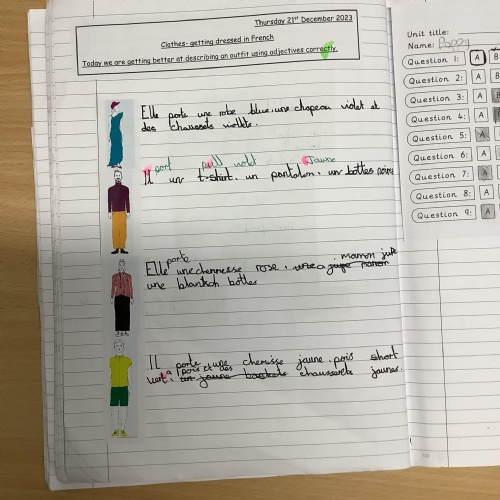 Thursday 21st December 2023
Clothes- getting dressed in French
Today we are getting better at describing an outfit using adjectives correctly.
Elle porte une robe blue, une chapeau violet et
des chaussets violets.
port pull violt Jaune
Il un t-shirt, un pantalon, un bottes noire
porte
marron jupe
Elle une chemesse rose,
une blantch bottes
Il porte, une chemisse jaune, pois short
pois et des
vert, un jaune baskets chaussests jaunes.
Unit title:
Name: Poppy
Question 1: A B
Question 2: A B
Question 3: A B
Question 4: A
Question 5: A
Question 6: A
Question 7: A
Question 8: A
Question 9: A